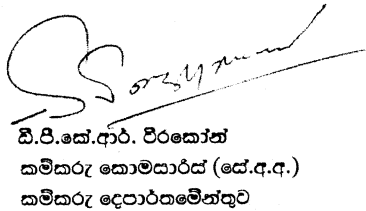 ඩී.පී.කේ.ආර්. වීරකෝන්
කම්කරු කොමසාරිස් (සේ.අ.අ.)
කම්කරු දෙපාර්තමේන්තුව